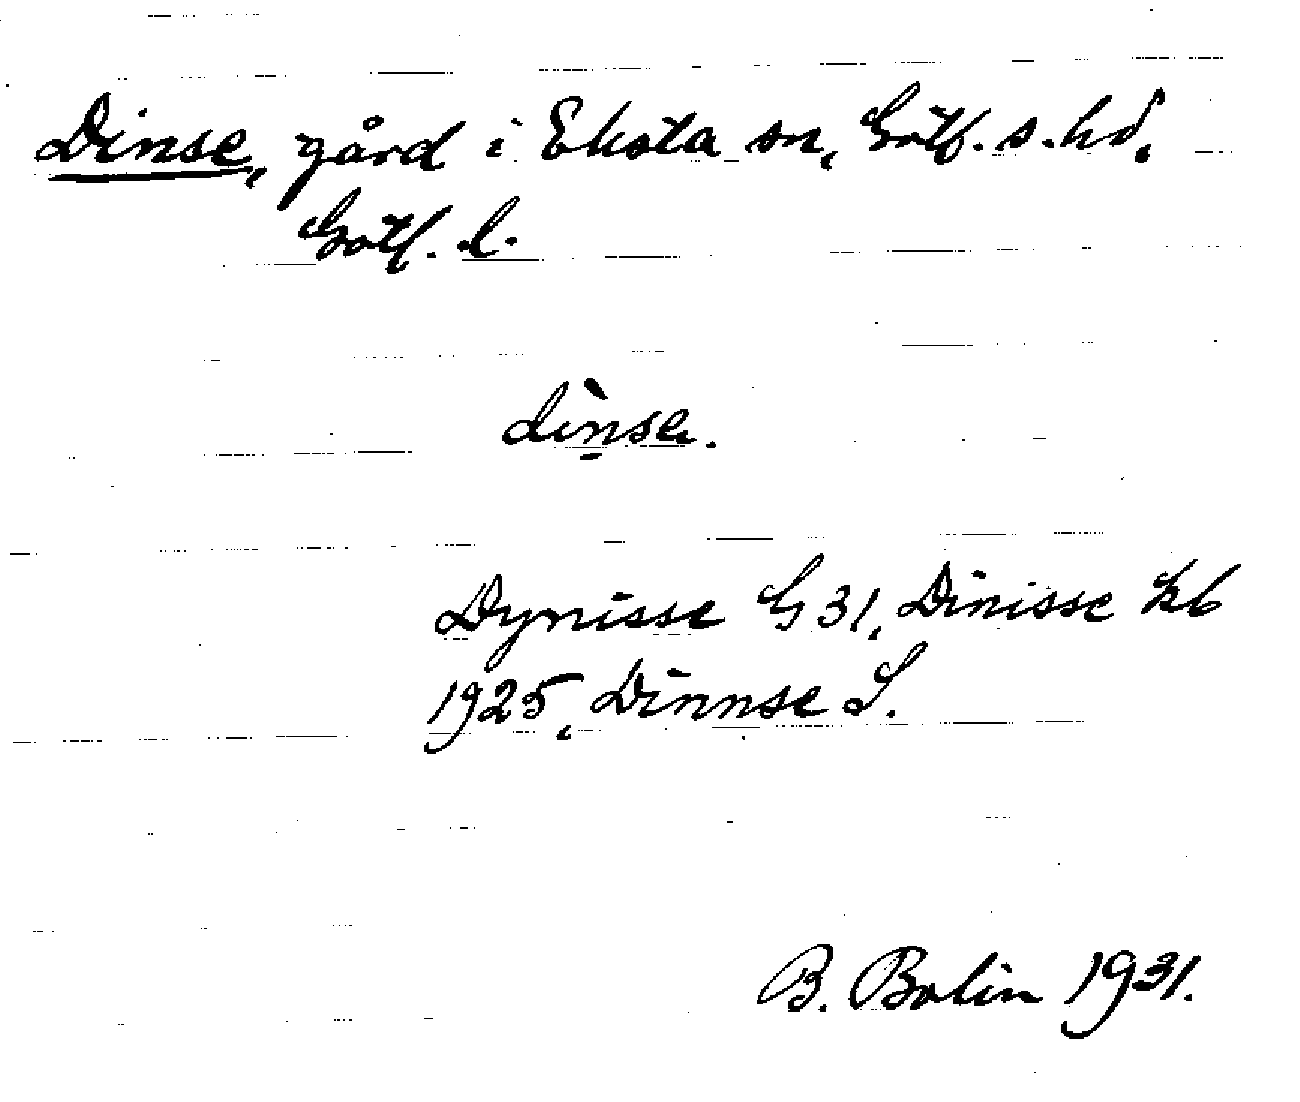 Dinse, gård i Eksta sn, Gotl. s. hd,
Gotl. l.
dìn̠sa.
Dynisse G 31, Dinisse kb
1925, Dinnse S.
B. Bolin 1931.